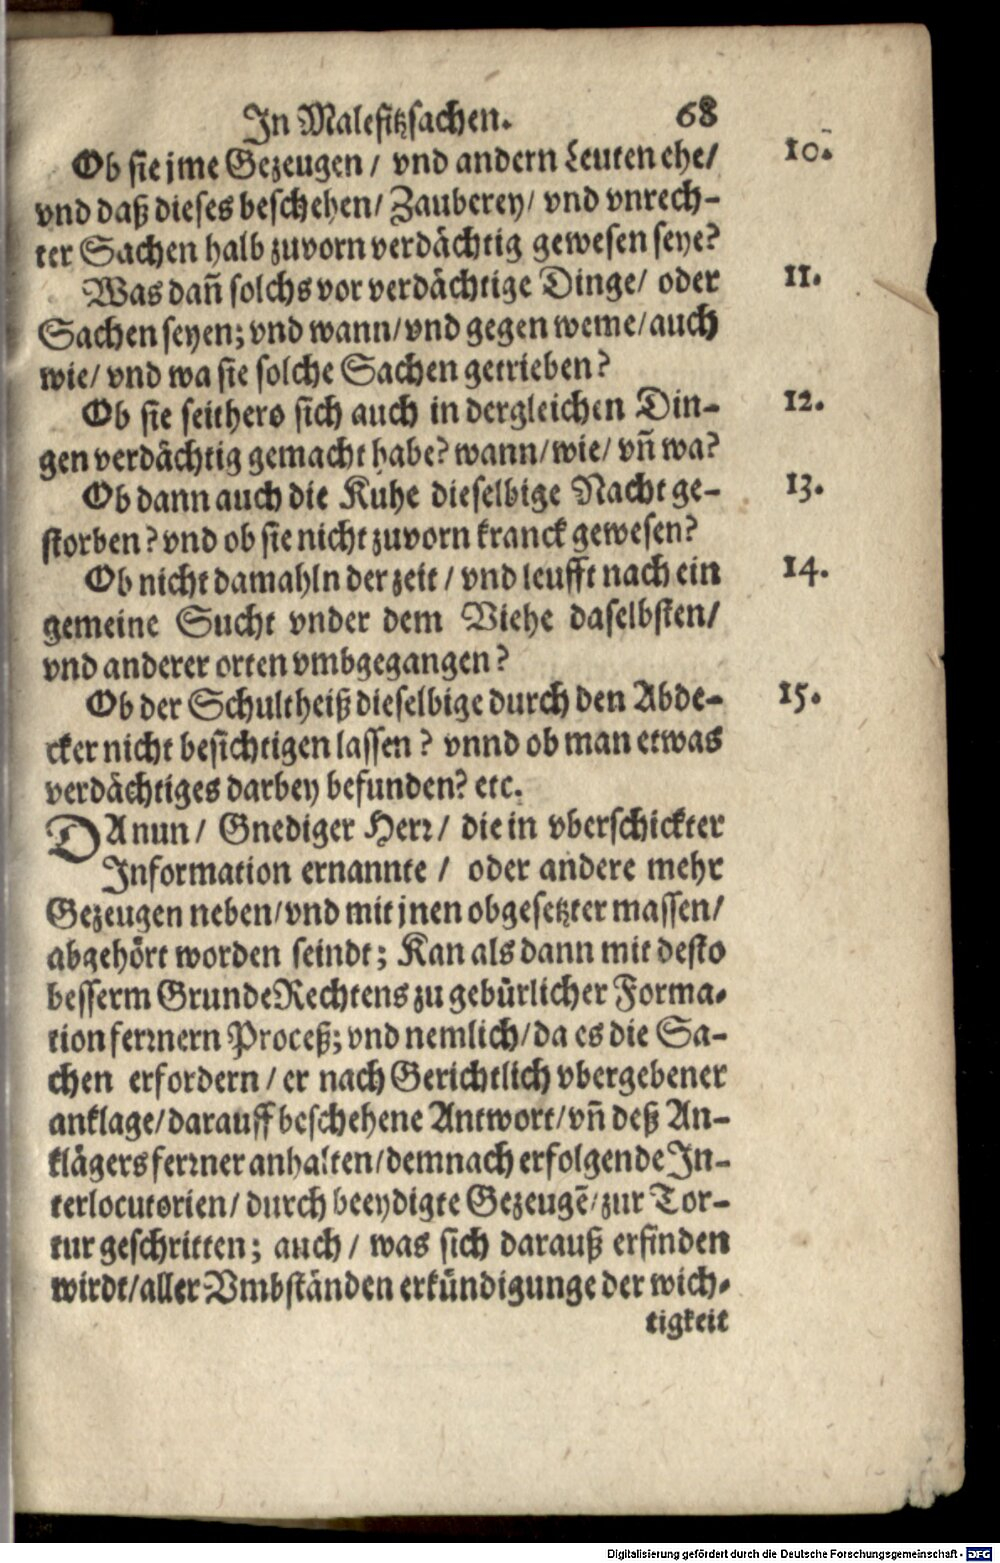 In Malefitzsachen. 68
Ob sie jme Gezeugen / vnd andern Leuten ehe / 10.
vnd daß dieses beschehen / Zauberey / vnd vnrech-
ter Sachen halb zuvorn verdächtig gewesen seye?
Was dañ solchs vor verdächtige Dinge / oder 11.
Sachen seyen; vnd wann / vnd gegen weme / auch
wie / vnd wa sie solche Sachen getrieben?
Ob sie seithero sich auch in dergleichen Din- 12.
gen verdächtig gemacht habe? wann / wie / vñ wa?
Ob dann auch die Kuhe dieselbige Nacht ge- 13.
storben? vnd ob sie nicht zuvorn kranck gewesen?
Ob nicht damahln der zeit / vnd leufft nach ein 14.
gemeine Sucht vnder dem Viehe daselbsten /
vnd anderer orten vmbgegangen?
Ob der Schultheiß dieselbige durch den Abde- 15.
cker nicht besichtigen lassen? vnnd ob man etwas
verdächtiges darbey befunden? etc.
DAnun / Gnediger Herꝛ / die in vberschickter
Information ernannte / oder andere mehr
Gezeugen neben / vnd mit jnen obgesetzter massen /
abgehört worden seindt; Kan als dann mit desto
besserm Grunde Rechtens zu gebürlicher Forma-
tion ferꝛnern Proceß; vnd nemlich / da es die Sa-
chen erfordern / er nach Gerichtlich vbergebener
anklage / darauff beschehene Antwort / vñ deß An-
klägers ferꝛner anhalten / demnach erfolgende In-
terlocutorien / durch beeydigte Gezeugẽ / zur Tor-
tur geschritten; auch / was sich darauß erfinden
wirdt / aller Vmbständen erkündigunge der wich-
tigkeit
Digitalisierung gefördert durch die Deutsche Forschungsgemeinschaft - DFG